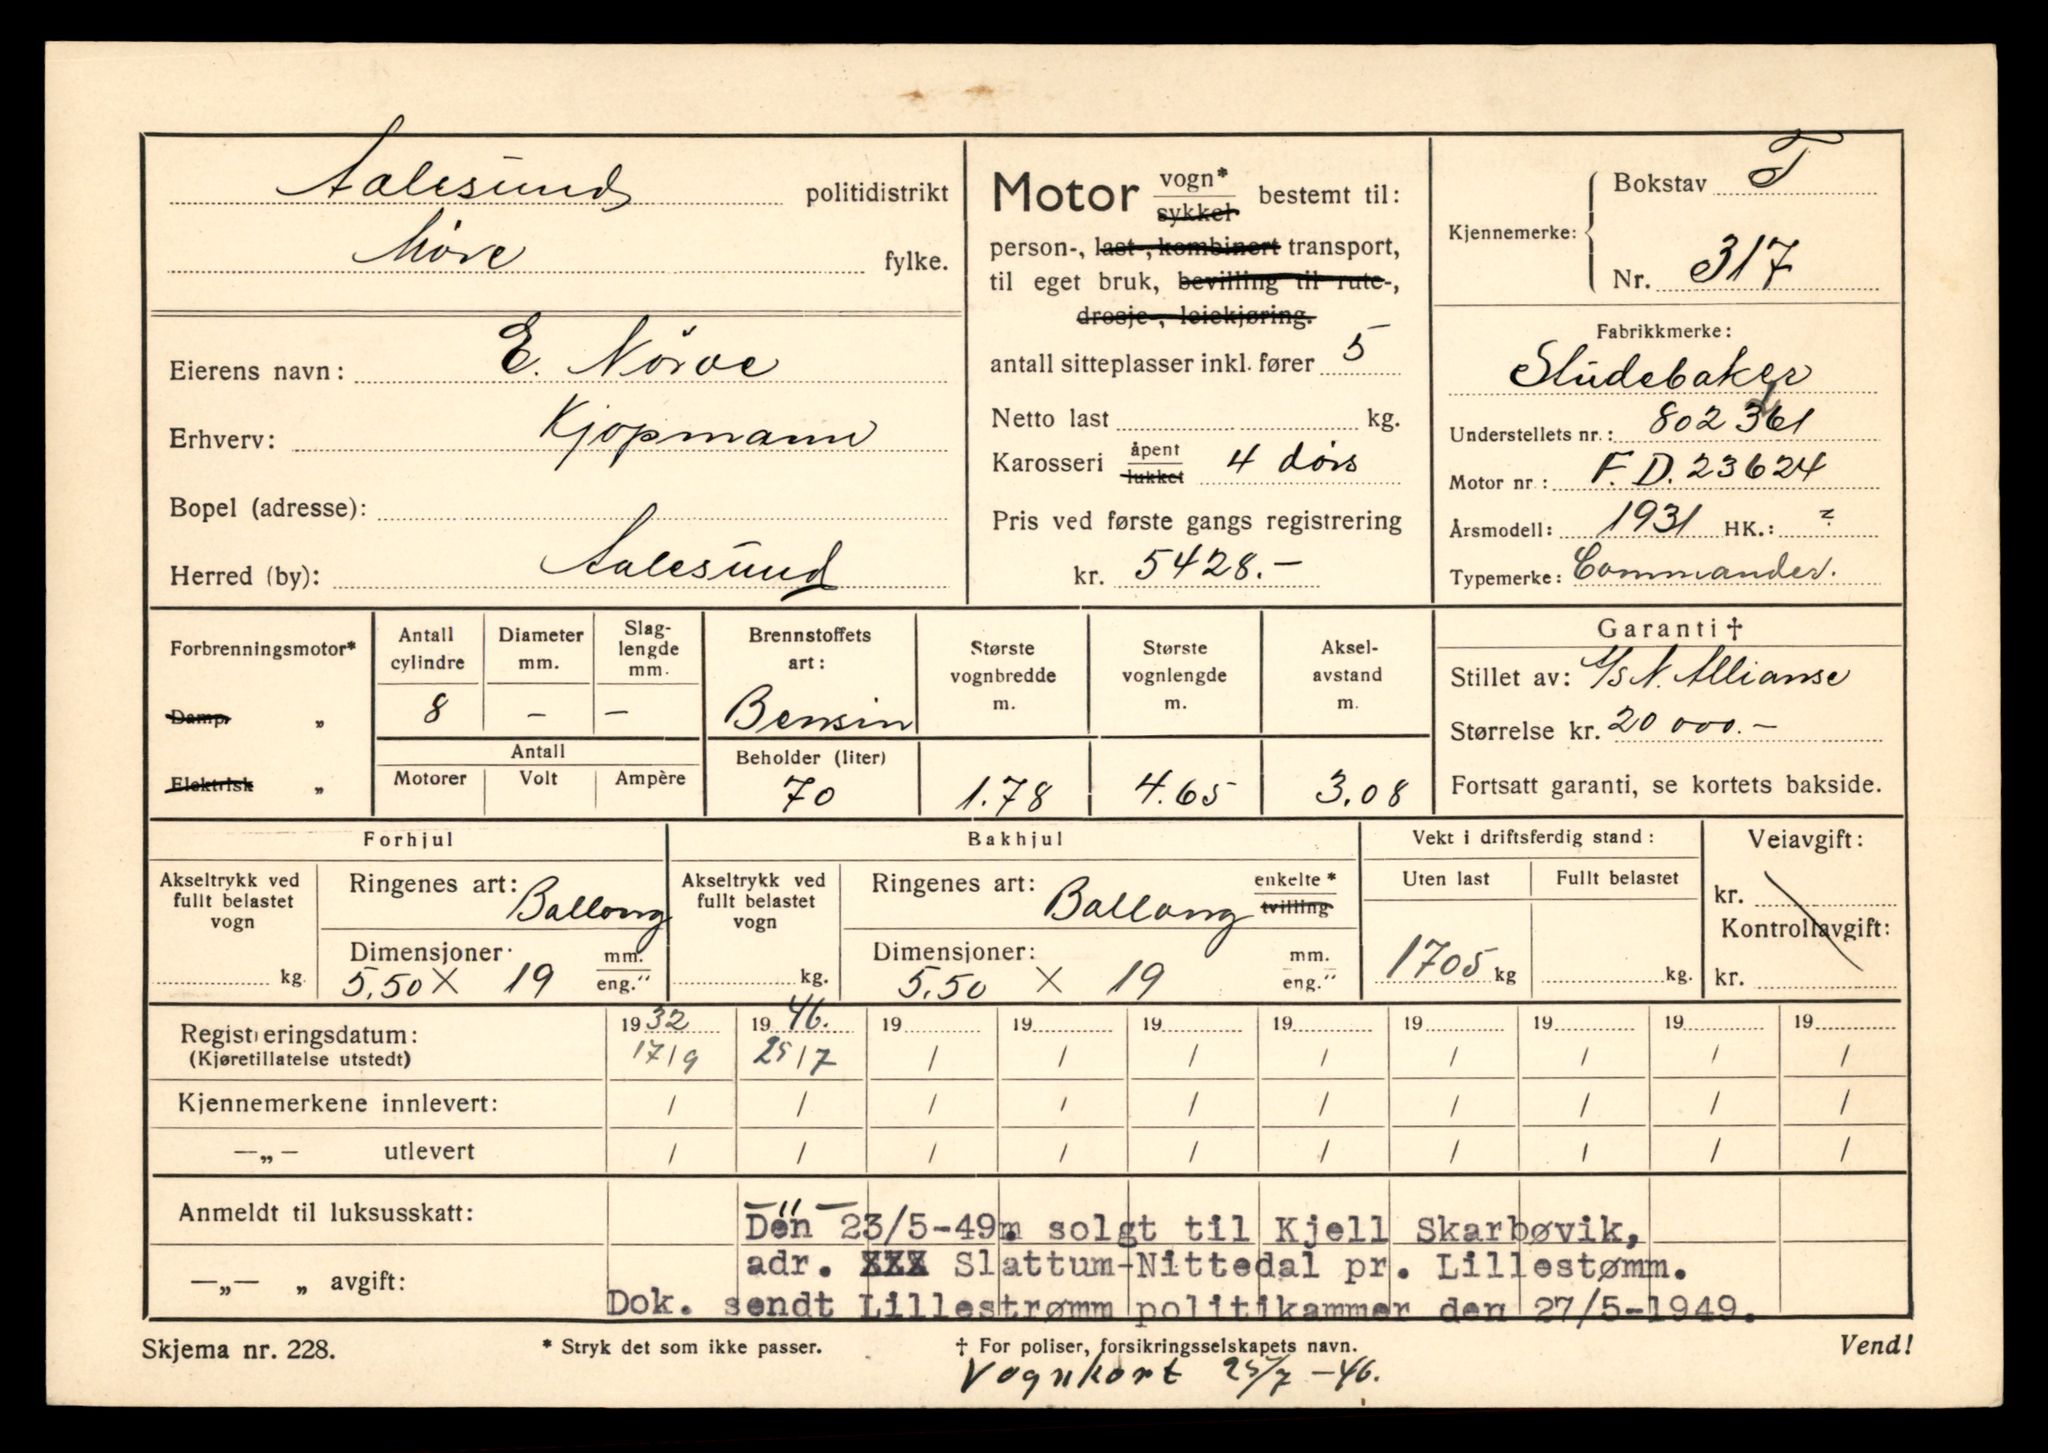 Aalesund politidistrikt
Møre fylke.
Eierens navn: E. Nörve
Erhverv: Kjøpmann
Bopel (adresse):
Herred (by): Aalesund
Motor vogn* sykkel bestemt til:
person-, last-, kombinert transport,
til eget bruk, bevilling til rute-,
drosje-, leiekjøring.
antall sitteplasser inkl. fører 5
Netto last kg.
Karosseri åpent lukket 4 dørs
Pris ved første gangs registrering
kr. 5428.-
Kjennemerke: Bokstav T
Nr. 317
Fabrikkmerke:
Studebaker
Understellets nr.: 802361
Motor nr.: F.D. 23624
Årsmodell: 1931 HK.: ?
Typemerke: Commander.
Forbrenningsmotor*
Damp „
Elektrisk „
Antall cylindre 8
Diameter mm. –
Slag-lengde mm. –
Antall
Motorer Volt Ampère
Brennstoffets art:
Bensin
Beholder (liter)
70
Største vognbredde m. 1.78
Største vognlengde m. 4.65
Aksel-avstand m. 3.08
Garanti †
Stillet av: A/S N. Allianse
Størrelse kr. 20 000.-
Fortsatt garanti, se kortets bakside.
Forhjul
Akseltrykk ved fullt belastet vogn kg.
Ringenes art: Ballong
Dimensjoner: mm. eng."
5.50 X 19
Bakhjul
Akseltrykk ved fullt belastet vogn kg.
Ringenes art: Ballong enkelte* tvilling
Dimensjoner: mm. eng."
5.50 X 19
Vekt i driftsferdig stand:
Uten last Fullt belastet
1705 kg kg.
Veiavgift:
kr.
Kontrollavgift:
kr.
Registreringsdatum: 1932 1946. 19 19 19 19 19 19 19 19
(Kjøretillatelse utstedt) 17/9 25/7 / / / / / / / /
Kjennemerkene innlevert: / / / / / / / / / /
—„— utlevert / / / / / / / / / /
Anmeldt til luksusskatt: —"—
Den 23/5-49. solgt til Kjell Skarbøvik,
—„— „ avgift: adr. XXX Slattum-Nittedal pr. Lillestømm.
Dok. sendt Lillestrømm politikammer den 27/5-1949.
Skjema nr. 228. * Stryk det som ikke passer. † For poliser, forsikringsselskapets navn. Vend!
Vognkort 25/7 -46.